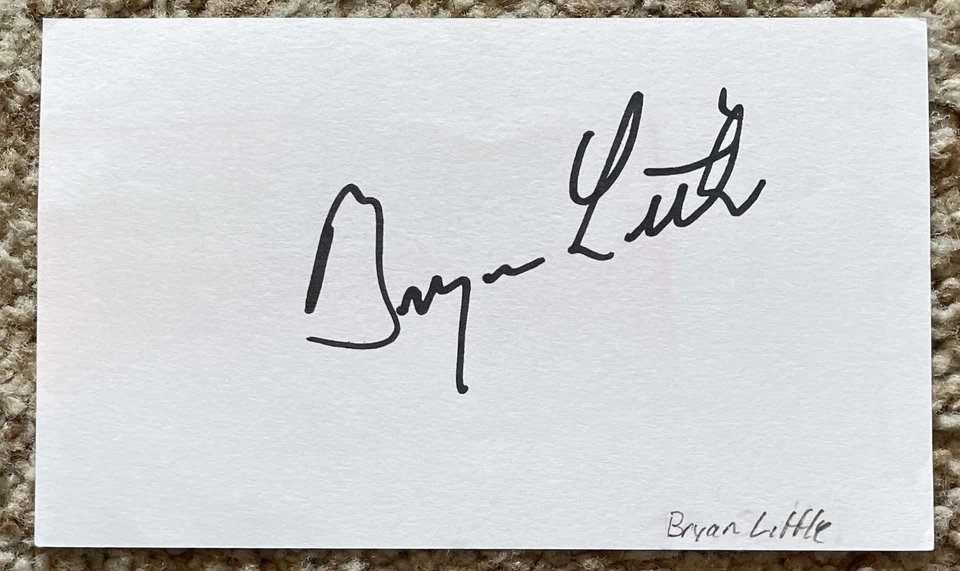 Bryan Little
Bryan Little